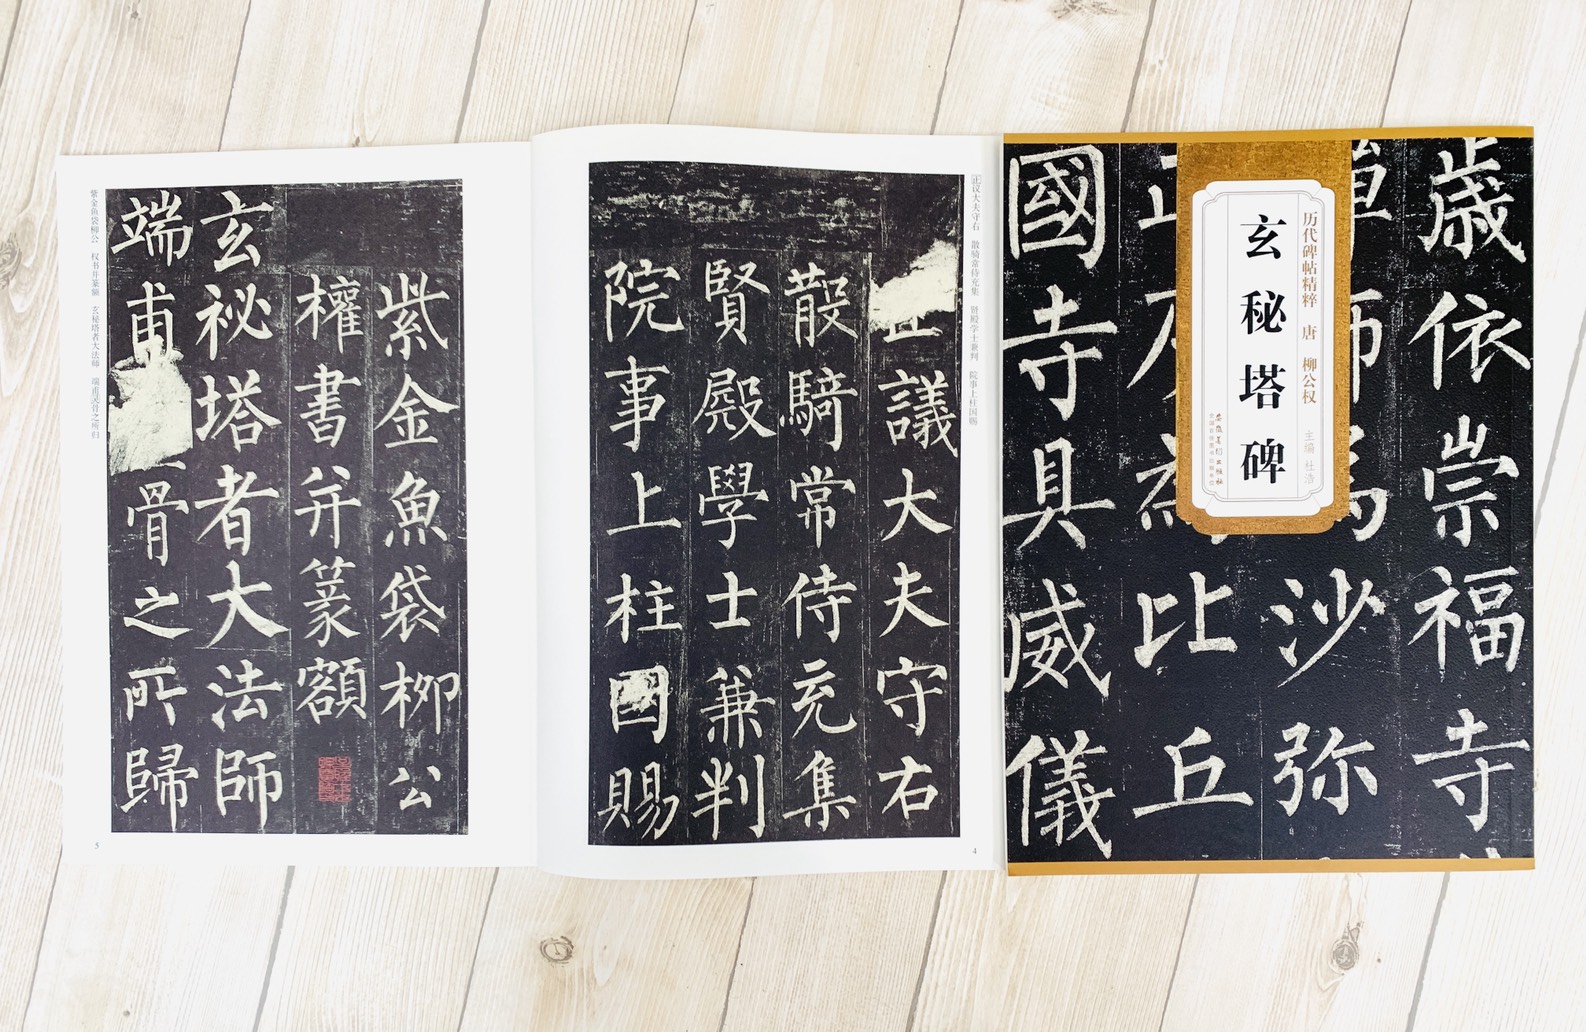 歲依崇福寺
沙弥
比丘
國寺具威儀
历代碑帖精粹 唐 柳公权 主编 杜浩
玄秘塔碑
安徽美術出版社
全国百佳图书出版单位
正议大夫守右 散骑常侍充集 贤殿学士兼判 院事上柱国赐
正議大夫守右
散騎常侍充集
賢殿學士兼判
院事上柱國賜
4
紫金魚袋柳公
權書并篆額
玄祕塔者大法師
端甫骨之所歸
紫金鱼袋柳公 权书并篆额 玄秘塔者大法师 端甫灵骨之所归
5